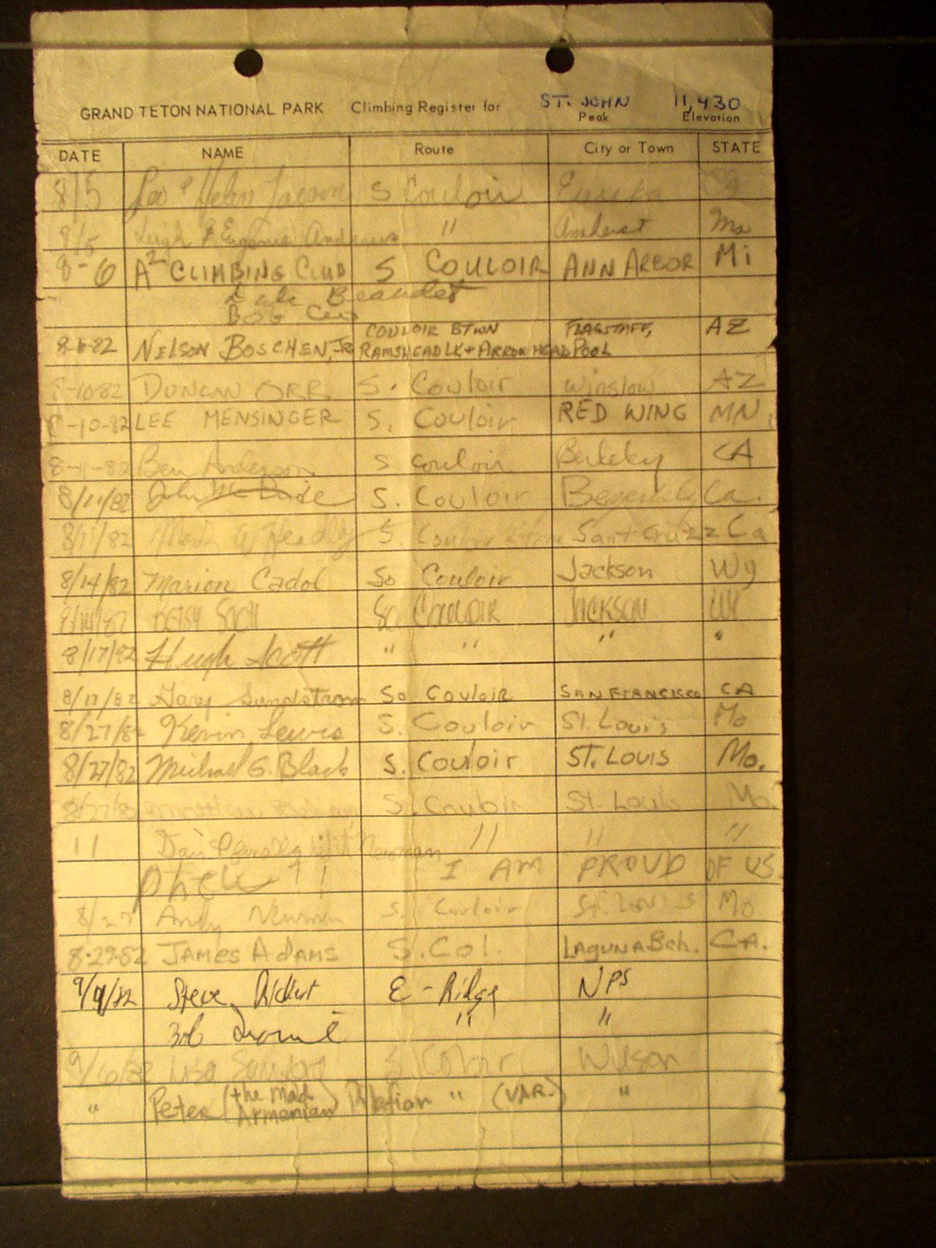 ST. JOHN 11,430
GRAND TETON NATIONAL PARK Climbing Register for Peak Elevation
DATE NAME Route City or Town STATE
8/5 Leo & Helen S Couloir Eureka
8/5 Leigh & Eugenie Andrews " Amherst Ma
8-6 A2 CLIMBING CLUB S COULOIR ANN ARBOR Mi
Beaudet
BOG
COULOIR BTWN FLAGSTAFF, AZ
8-6-82 NELSON BOSCHEN, JR RAMSHEAD LK + ARROWHEAD POOL
8-10-82 DUNCAN ORR S. Couloir Winslow AZ
8-10-82 LEE MENSINGER S. Couloir RED WING MN.
8-11-82 Ben Anderson S couloir Berkeley CA
8/11/82 John McBride S. Couloir Ca.
8/11/82 S. Couloir Santa Cruzz Ca
8/14/82 Marion Cadol So Couloir Jackson Wy
8/14/82 So COULOIR JACKSON WY
8/17/82 Hugh Scott " " " "
8/17/82 Gary Sundstrom So. Couloir SAN FRANCISCO CA
8/27/82 Kevin Lewis S. Couloir St. Louis Mo
8/27/82 Michael G. Black S. Couloir ST. LOUIS Mo.
8/27/82 S. Couloir St. Louis Mo.
11 Newman " " "
I AM PROUD OF US
8/27 Andy Newman S. Couloir St. Louis Mo
8-29-82 JAMES ADAMS S. Col. LAGUNA Bch. CA.
9/9/82 Steve Rickert E-Ridge NPS
Bob " "
9/6/82 Lisa S Wilson
" Peter (the Mad Armenian) " (VAR.) "